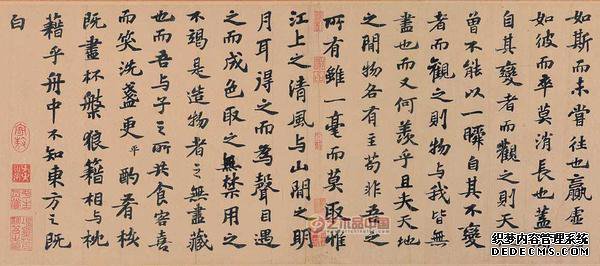 如斯而未嘗往也贏虛
如彼而卒莫消長也蓋
自其變者而觀之則天
曾不能以一瞬自其不變
者而觀之則物與我皆無
盡也而又何羨乎且夫天地
之間物各有主苟非吾之
所有雖一毫而莫取惟
江上之清風與山間之明
月耳得之而為聲目遇
之而成色取之無禁用之
不竭是造物者之無盡藏
也而吾與子之所共食客喜
而笑洗盞更平酌肴核
既盡杯槃狼籍相與枕
藉乎舟中不知東方之既
白
织梦内容管理系统
DEDECMS.COM